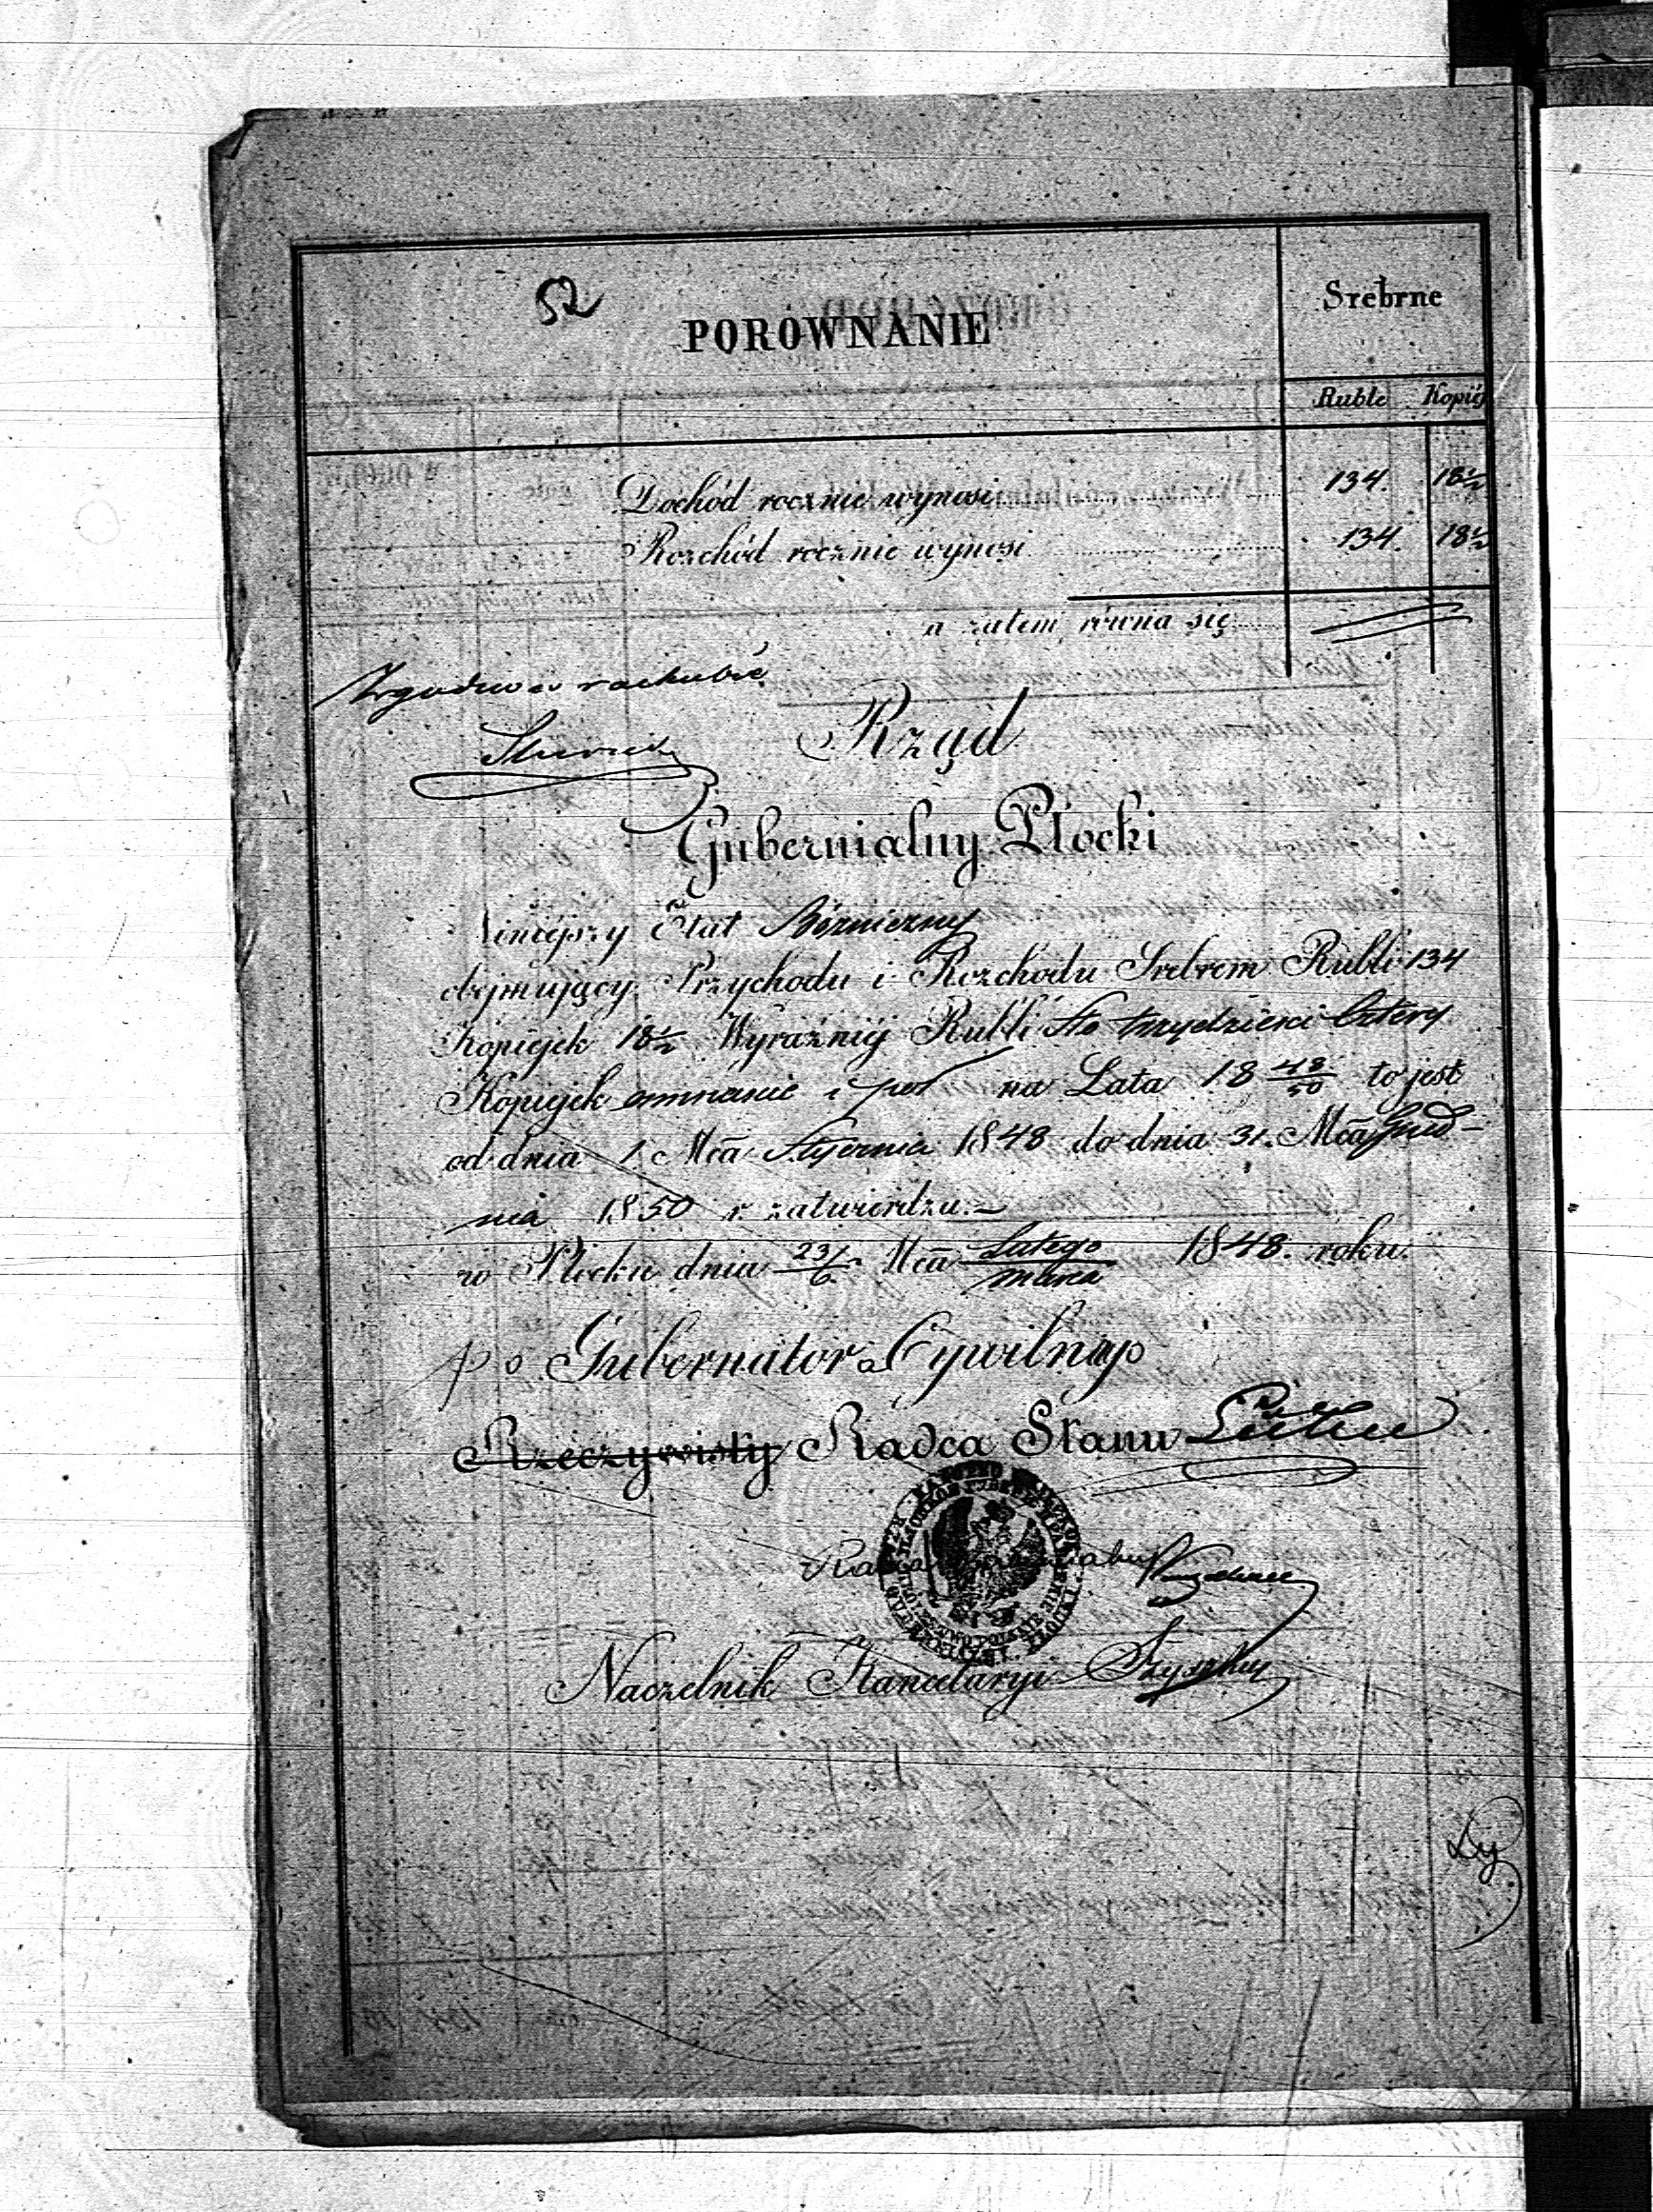 52
PORÓWNANIE
Srebrne
Ruble Kopiéj
Dochód rocznie wynosi 134 18½
Rozchód rocznie wynosi 134. 18½
a zatem równa się
Zgodno w rachubie
Rząd
Gubernialny Płocki
Niniejszy Etat Bóżniczny
obejmujący Przychodu i Rozchodu Srebrem Rubli 134
Kopiejek 18½ Wyraźniéj Rubli Sto trzydzieści cztery
Kopiejek ośmnaście i pół na Lata 18 48/50 to jest
od dnia 1. Mca Stycznia 1848 do dnia 31. Mca Grud-
nia 1850 r. zatwierdza.
w Płocku dnia 23/6 Mca Lutego/Marca 1848. roku.
p o Gubernatora Cywilnego
Rzeczywisty Radca Stanu
Radca Gubernialny
Naczelnik Kancelaryi